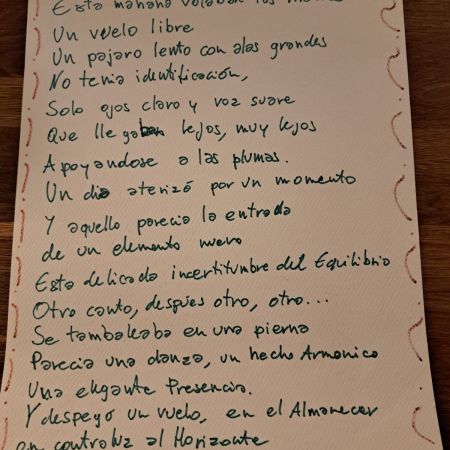 Esta mañana volaban los
Un vuelo libre
Un pajaro lento con alas grandes
No tenia identificación,
Solo ojos claro y voz suave
Que llegaban lejos, muy lejos
Apoyandose a las plumas.
Un dia aterizó por un momento
Y aquello parecia la entrada
de un elemento nuevo
Esta delicada incertitumbre del Equilibrio
Otro canto, despues otro, otro...
Se tambaleaba en una pierna
Parecia una danza, un hecho Armonico
Una elegante Presencia.
Y despegó un vuelo, en el Almanecer
en contraluz al Horizonte